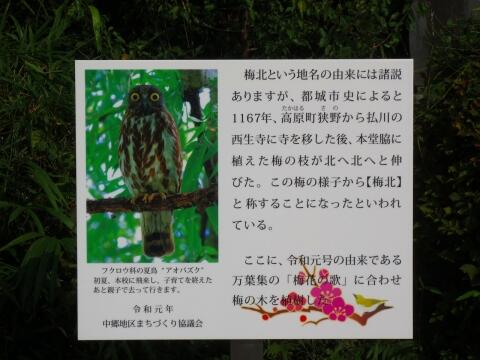 梅北という地名の由来には諸説
ありますが、都城市史によると
1167年、高原町狭野から払川の
たかはる さの
西生寺に寺を移した後、本堂脇に
植えた梅の枝が北へ北へと伸
びた。この梅の様子から【梅北】
と称することになったといわれ
ている。
ここに、令和元号の由来である
万葉集の「梅花の歌」に合わせ
梅の木を植樹した。
フクロウ科の夏鳥“アオバズク”
初夏、本校に飛来し、子育てを終えた
あと親子で去って行きます。
令和元年
中郷地区まちづくり協議会